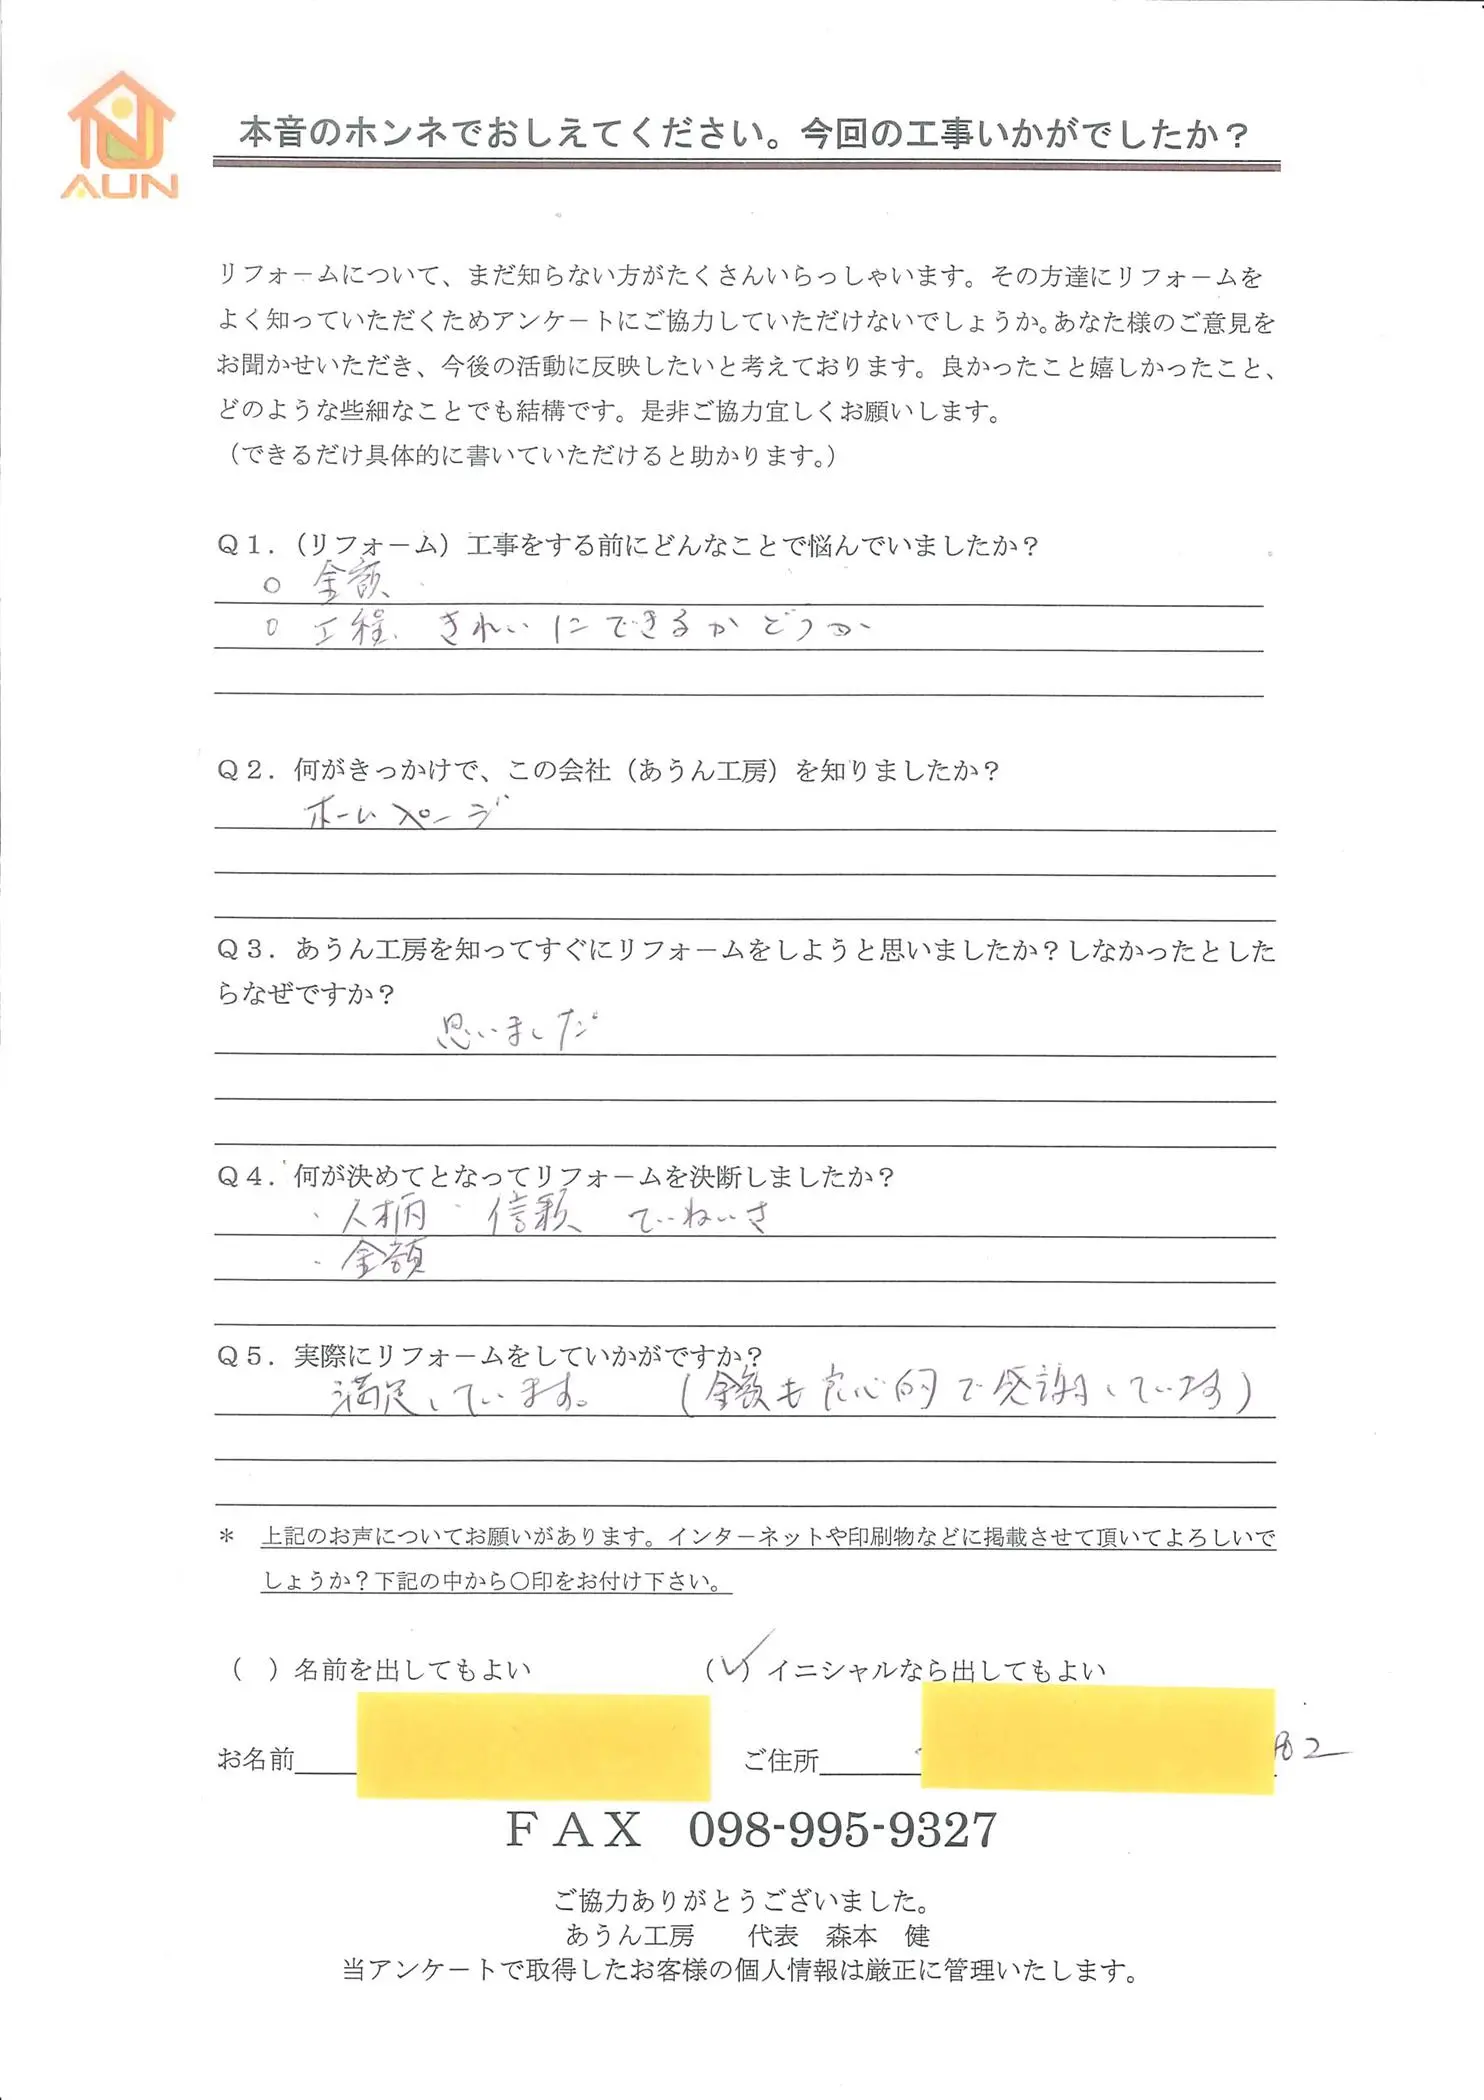 AUN
本音のホンネでおしえてください。今回の工事いかがでしたか？
リフォームについて、まだ知らない方がたくさんいらっしゃいます。その方達にリフォームを
よく知っていただくためアンケートにご協力していただけないでしょうか。あなた様のご意見を
お聞かせいただき、今後の活動に反映したいと考えております。良かったこと嬉しかったこと、
どのような些細なことでも結構です。是非ご協力宜しくお願いします。
（できるだけ具体的に書いていただけると助かります。）
Ｑ１．（リフォーム）工事をする前にどんなことで悩んでいましたか？
○ 金額
○ 工程、きれいにできるかどうか
Ｑ２．何がきっかけで、この会社（あうん工房）を知りましたか？
ホームページ
Ｑ３．あうん工房を知ってすぐにリフォームをしようと思いましたか？しなかったとした
らなぜですか？
思いました
Ｑ４．何が決めてとなってリフォームを決断しましたか？
・人柄・信頼 ていねいさ
・金額
Ｑ５．実際にリフォームをしていかがですか？
満足しています。（金額も良心的で感謝しています）
＊ 上記のお声についてお願いがあります。インターネットや印刷物などに掲載させて頂いてよろしいで
しょうか？下記の中から○印をお付け下さい。
（ ）名前を出してもよい （✓）イニシャルなら出してもよい
お名前 ご住所 02
ＦＡＸ 098-995-9327
ご協力ありがとうございました。
あうん工房 代表 森本 健
当アンケートで取得したお客様の個人情報は厳正に管理いたします。